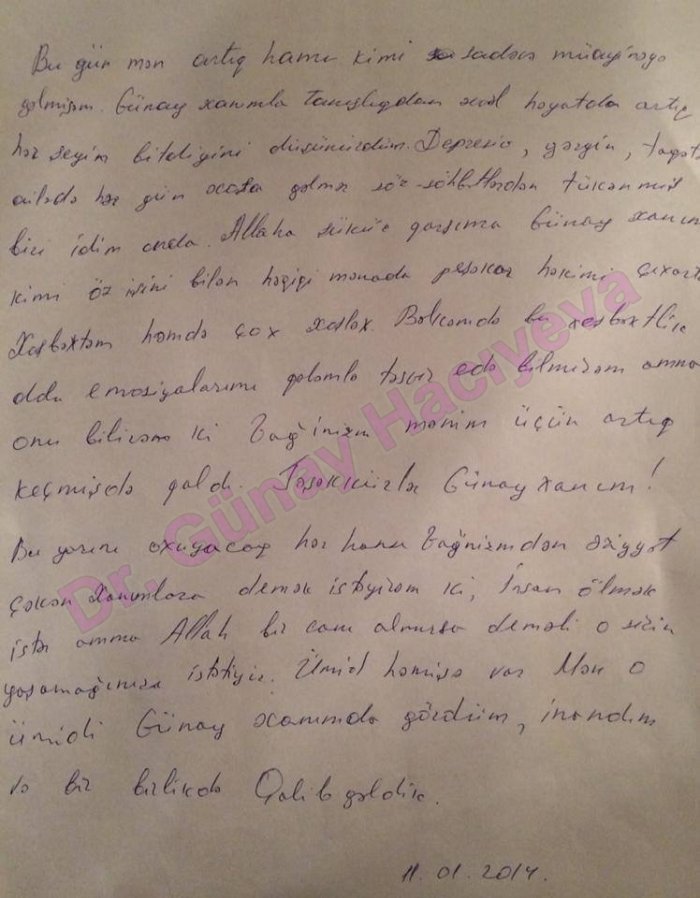 Bu gün mən artıq hamı kimi sadəcə müayinəyə
gəlmişəm. Günay xanımla tanışlıqdan əvvəl həyatda artıq
hər şeyin bitdiyini düşünürdüm. Depresiv, gərgin,
ailədə hər gün söz-söhbətlərdən tükənmiş
biri idim onda. Allaha şükür qarşıma Günay xanım
kimi öz işini bilən həqiqi mənada peşəkar həkimi çıxartdı
Xoşbəxtəm həmdə çox xoşbəx. Bəlkəmdə bu xoşbəxtlik
emosiyalarımı qələmlə təsvir edə bilmirəm amma
onu bilirəm ki Vağinizm mənim üçün artıq
keçmişdə qaldı. Təşəkkürlər Günay xanım!
Bu yazını oxuyacaq hər hansı Vağnizmdən əziyyət
çəkən Xanımlara demək istəyirəm ki, İnsan ölmək
istər amma Allah bir canı almırsa deməli o sizin
yaşamağınıza istəyir. Ümid həmişə var Mən o
ümidi Günay xanımda gördüm, inandım
və biz birlikdə Qalib gəldik.
11.01.2014.
Dr. Günay Hacıyeva